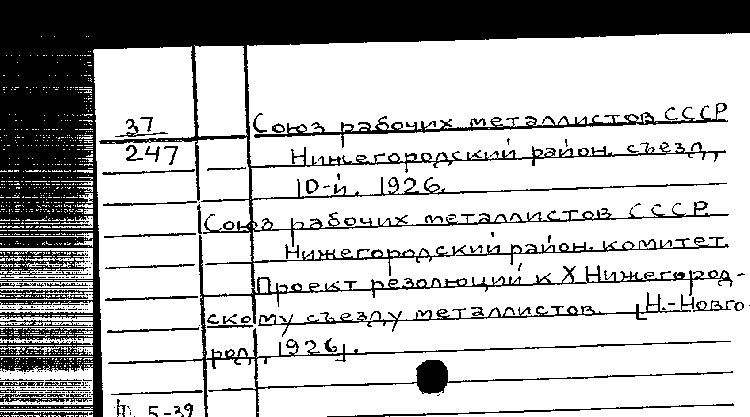 37
247
Союз рабочих металлистов СССР
Нижегородский район. съезд,
10-й. 1926.
Союз рабочих металлистов СССР.
Нижегородский район. комитет.
Проект резолюций к X Нижегород-
скому съезду металлистов. [Н.-Новго-
род, 1926].
5-39